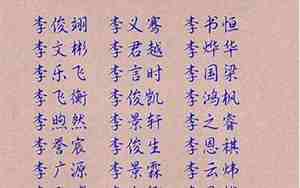 李俊翊 李义骞 李书恒
李文彬 李君越 李烨华
李乐飞 李言时 李国梁
李飞衡 李俊凯 李鸿枫
李煦然 李景轩 李之睿
李誉宸 李俊生 李恩祺
李广源 李景霖 李云炜